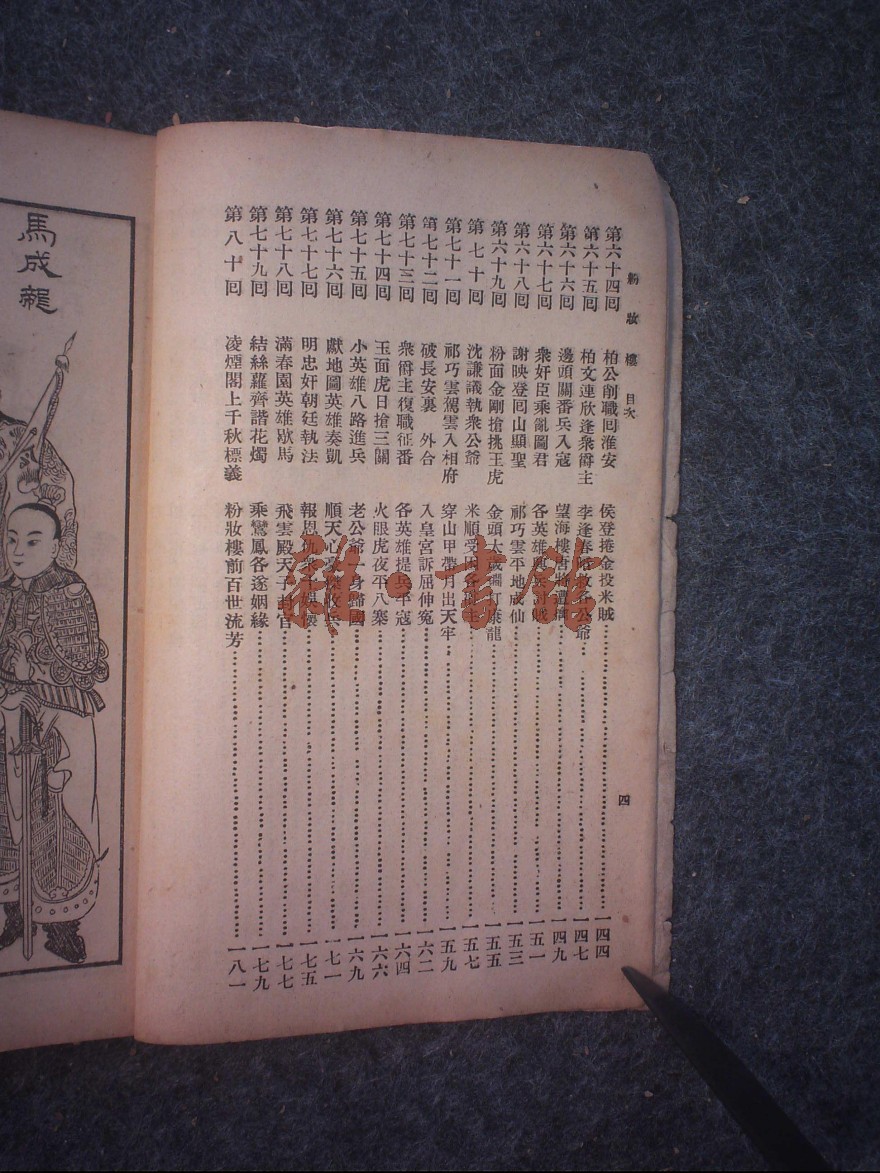 粉妝樓 目次
四
第六十四囘 柏公削職囘淮安 侯登捲金投米賊 一四四
第六十五囘 柏文連欣逢衆爵主 李逢春 公爺 一四七
第六十六囘 邊頭關番兵入寇 望海樓 一四九
第六十七囘 衆奸臣乘亂圖君 各英雄興兵討賊 一五一
第六十八囘 謝映登囘山顯聖 祁巧雲平地成仙 一五三
第六十九囘 粉面金剛搶挑王虎 金頭太歲 康龍 一五五
第七十囘 沈謙議執衆公爺 米順受困各爵主 一五七
第七十一囘 祁巧雲駕雲入相府 穿山甲帶月出天牢 一五九
第七十二囘 破長安裏 外合 入皇宮訴屈伸寃 一六二
第七十三囘 衆爵主復職征番 各英雄提兵平寇 一六四
第七十四囘 玉面虎日搶三關 火眼虎夜平八寨 一六六
第七十五囘 小英雄八路進兵 老公爺 身歸國 一六九
第七十六囘 獻地圖英雄奏凱 順天心 收兵 一七一
第七十七囘 明忠奸朝廷執法 報恩仇衆 一七五
第七十八囘 滿春園英雄歇馬 飛雲殿天子封官 一七七
第七十九囘 結絲蘿齊諧花燭 乘鸞鳳各遂姻緣 一七九
第八十囘 凌煙閣上千秋標義 粉妝樓前百世流芳 一八一
馬成龍
雜·書館